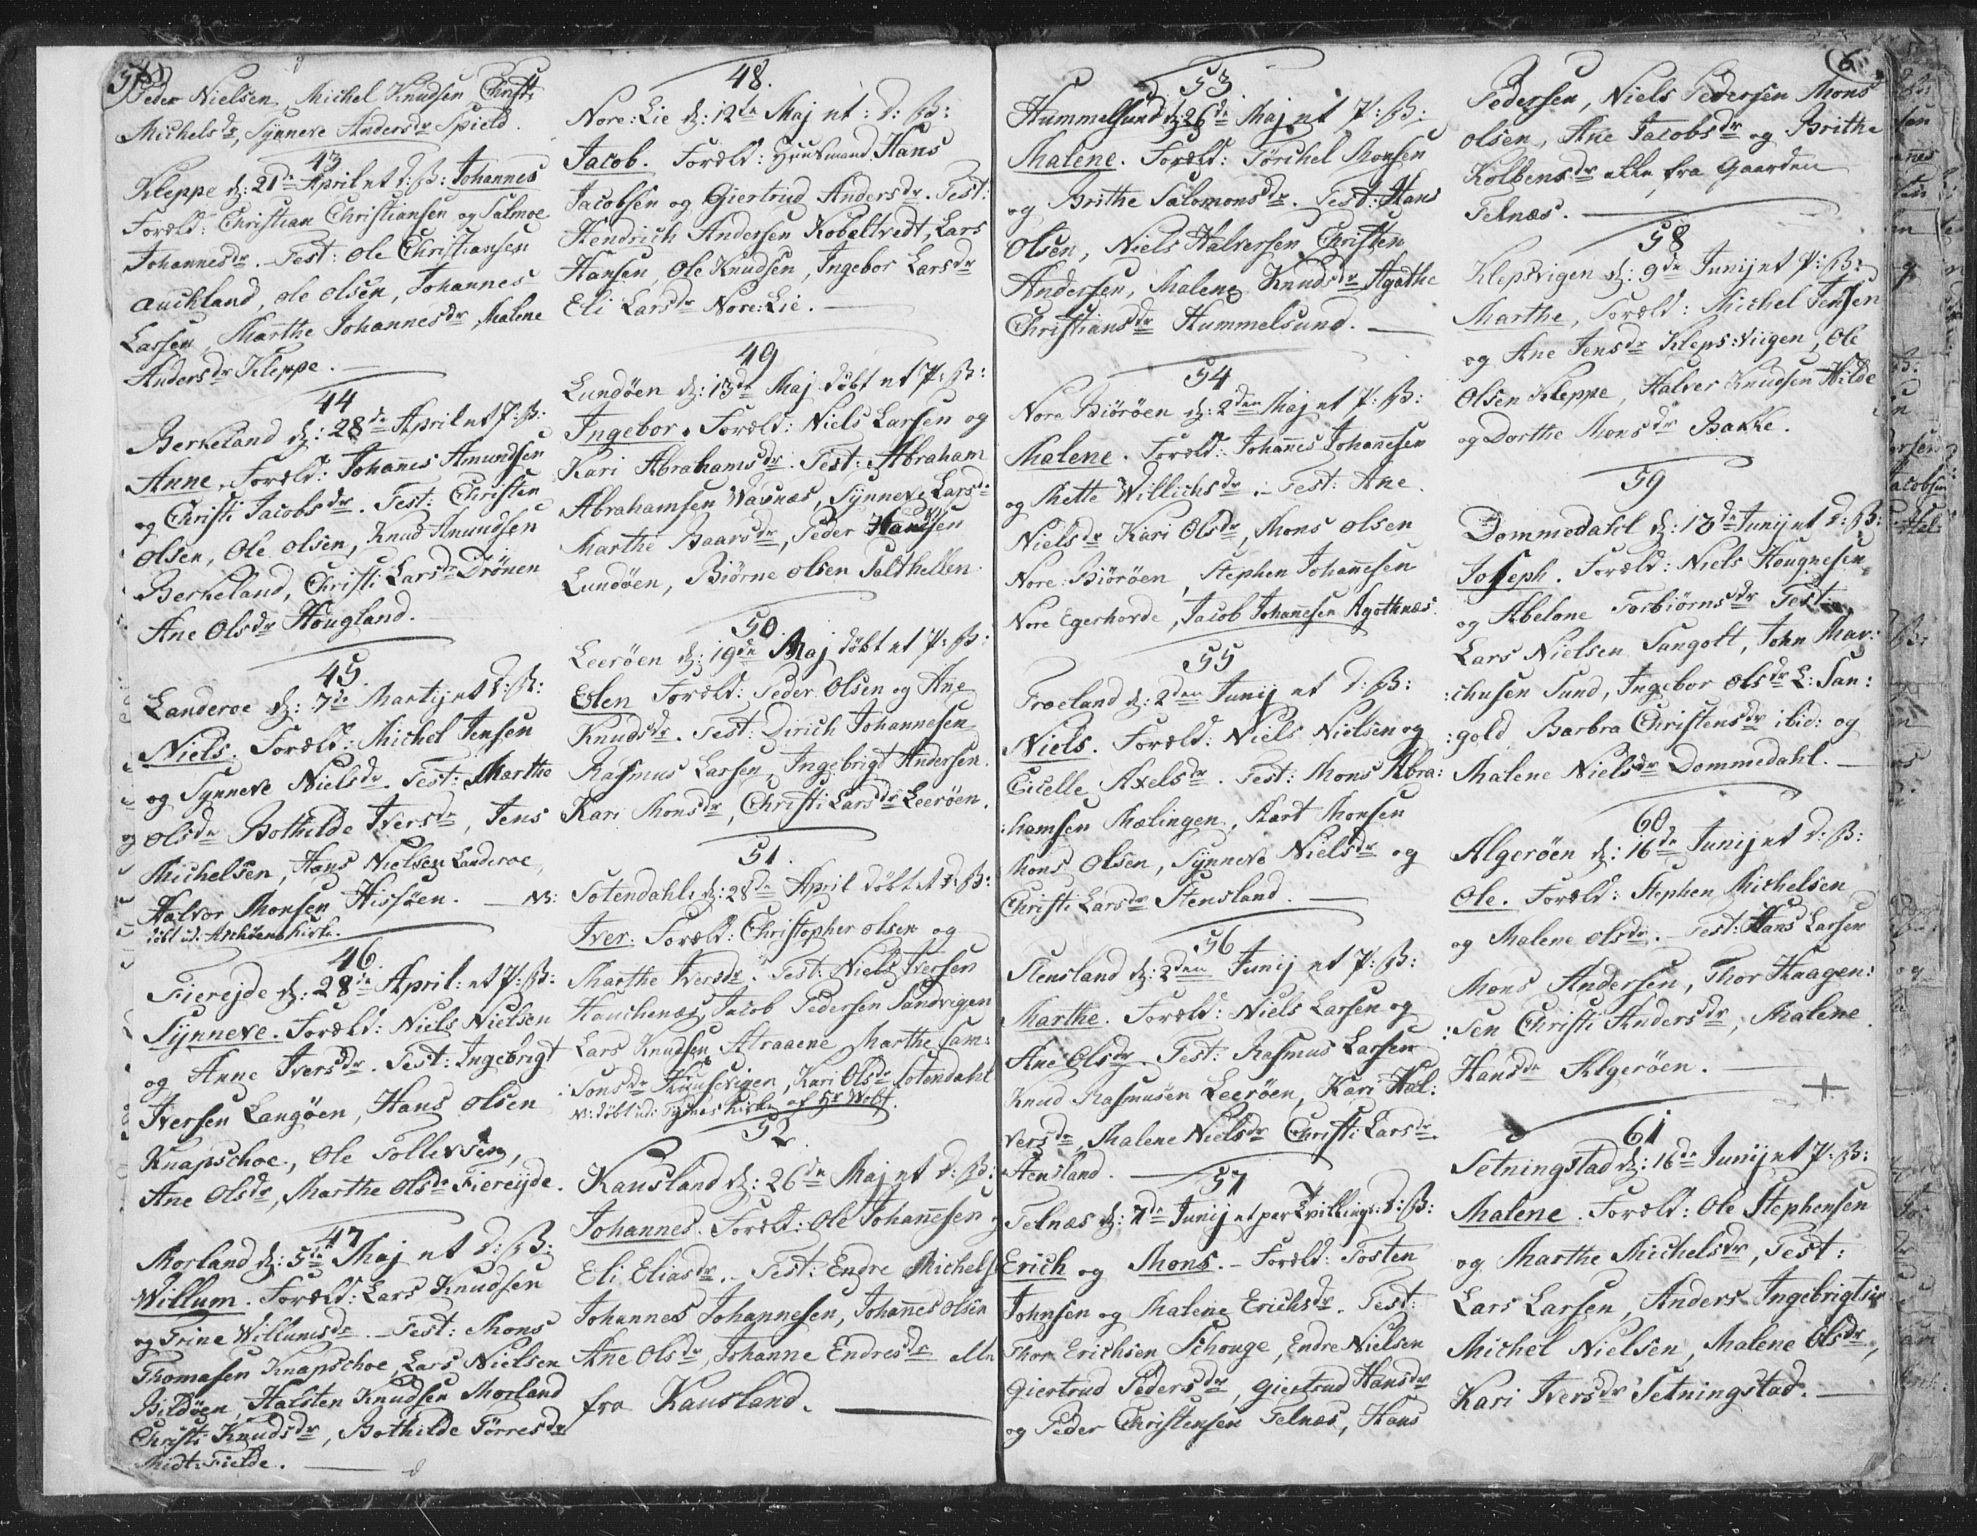 Peder Nielsen, Michel Knudsen Christi
Michelsdr, Synneve Andersdr Spield.
43
Kleppe d: 21de April et d: B: Johannes
Foræld: Christian Christiansen og Salmoe
Johannesdr. Test: Ole Christiansen
Auckland, Ole Olsen, Johannes
Lassen, Marthe Johannesdr, Malene
Andersdr Kleppe.
44
Berkeland d: 28de April et P: B:
Anne. Foræld: Johanes Amundsen
og Christi Jacobsdr. Test: Christen
Olsen, Ole Olsen, Knud Amundsen
Berkeland, Christi Larsdr Drönen
Ane Olsdr Hougland.
45.
Landeroe d: 7de Martij et d: B:
Niels. Foræld: Michel Jensen
og Synneve Nielsdr. Test: Marthe
Olsdr Bothilde Iversdr, Jens
Michelsen, Hans Nielsen Landeroe,
Halvor Monsen Hissöen.
döbt ud: Kirke.
46.
Fiereyde d: 28de April: et P: B:
Synneve. Foræld: Niels Nielsen
og Anne Iversdr. Test: Ingebrigt
Iversen Langöen, Hans Olsen
Knapschoe, Ole Tollevsen,
Ane Olsdr, Marthe Olsdr Fiereijde.
47
Morland d: 5te Maj et d: B:
Willum. Foræld: Lars Knudsen
og Trine Willumsdr. Test: Mons
Thomasen Knapschoe, Lars Nielsen
Bildöen, Halsten Knudsen Morland
Christi Knudsdr, Bothilde Törresdr
Midt: Fielde.
48.
Nore: Lie d: 12te Maj et: d: B:
Jacob. Foræld: Huusmand Hans
Jacobsen og Giertrud Andersdr. Test:
Hendrich Andersen Kobeltvedt, Lars
Hansen, Ole Knudsen, Ingebor Larsdr
Eli Larsdr Nore: Lie.
49
Lundöen d: 13de Maj döbt et P: B:
Ingebor. Foræld: Niels Larsen og
Kari Abrahamsdr. Test: Abraham
Abrahamsen Wavnæs, Synneve Larsdr
Marthe Baarsdr, Peder Hansen
Lundöen, Biörne Olsen Salthellen.
50.
Leeröen d: 19de Maj döbt et P: B:
Elen Foræld: Peder Olsen og Ane
Knudsdr. Test: Dirich Johannesen
Rasmus Larsen, Ingebrigt Andersen.
Kari Monsdr, Christi Larsdr Leeröen.
51.
NB: Totendahl: d: 28de April döbt et d: B:
Iver. Foræld: Christopher Olsen og
Marthe Iversdr. Test: Niels Iversen
Hauchenæs, Jacob Pedersen Sandvigen
Lars Knudsen Marthe Sam:
:sonsdr Knusevigen, Kari Olsdr Totendahl
NB: döbt ud: Tysnæs Kirke af Hr
52.
Kausland d: 26de Maj et d: B:
Johannes. Foræld: Ole Johanesen og
Eli Eliasdr. Test: Endre Michels
Johannes Johannesen, Johanes Olsen
Ane Olsdr, Johanne Endresdr alle
fra Kausland.
53.
Hummelsund d: 26de Maj et P: B:
Malene. Foræld: Törchel Monsen
og Brithe Salomonsdr. Test: Hans
Olsen, Niels Halversen, Christen
Andersen, Malene Knudsdr Agathe
Christiansdr Hummelsund.
54
Nore Biöröen d: 2den Maj et P: B:
Malene. Foræld: Johanis Johanesen
og Mette Willichsdr. Test: Ane
Nielsdr Kari Olsdr, Mons Olsen
Nore Biöröen, Stephen Johanesen
Nore Egerhorde, Jacob Johanesen Agothnæs.
55
Troeland d: 2den Junij et d: B:
Niels. Foræld: Niels Nielsen og
Cicelle Axelsdr. Test: Mons Abra:
:hamsen Mælingen, Aart Monsen
Mons Olsen, Synneve Nielsdr og
Christi Larsdr Stensland.
56
Stensland d: 2den Junij et P: B:
Marthe. Foræld: Niels Larsen og
Ane Olsdr. Test: Rasmus Larsen
Knud Rasmusen Leeröen, Kari Hal:
versdr, Malene Nielsdr Christi Larsdr
Stensland.
57
Telnæs d: 7de Junij et par Tvillinge: d: B:
Erich og Mons. Foræld: Tosten
Johnsen og Malene Erichsdr. Test:
Thor Erichsen Schouge, Endre Nielsen
Giertrud Pedersdr, Giertrud Hansdr
og Peder Christensen Telnæs, Hans
6.
Pedersen, Niels Pedersen Mons
Olsen, Ane Jacobsdr og Brithe
Kolbensdr alle fra Gaarden
Telnæs.
58
Klepsvigen d: 9de Junij et P: B:
Marthe, Foræld: Michel Jensen
og Ane Jensdr Kleps: Viigen, Ole
Olsen Kleppe, Halver Knudsen Wilde
og Dorthe Monsdr Bakke.
59
Dommedahl d: 13de Junij et d: B:
Joseph. Foræld: Niels Hougnesen
og Abelone Torbiörnsdr Test:
Lars Nielsen Sangolt, John Mar:
:chusen Sund, Ingebor Olsdr L: San:
:gold Barbra Christensdr ibid: og
Malene Nielsdr Dommedahl.
60
Algeröen d: 16de Junij et d: B:
Ole. Foræld: Stephen Michelsen
og Malene Olsdr. Test: Hans Larsen
Mons Andersen, Thor Haagen:
:sen Christi Andersdr, Malene
Hansdr Algeröen.
61
Setningstad d: 16de Junij et P: B:
Malene. Foræld: Ole Stephensen
og Marthe Michelsdr, Test:
Lars Larsen, Anders Ingebrigtsen
Michel Nielsen, Malene Olsdr,
Kari Iversdr Setningstad.